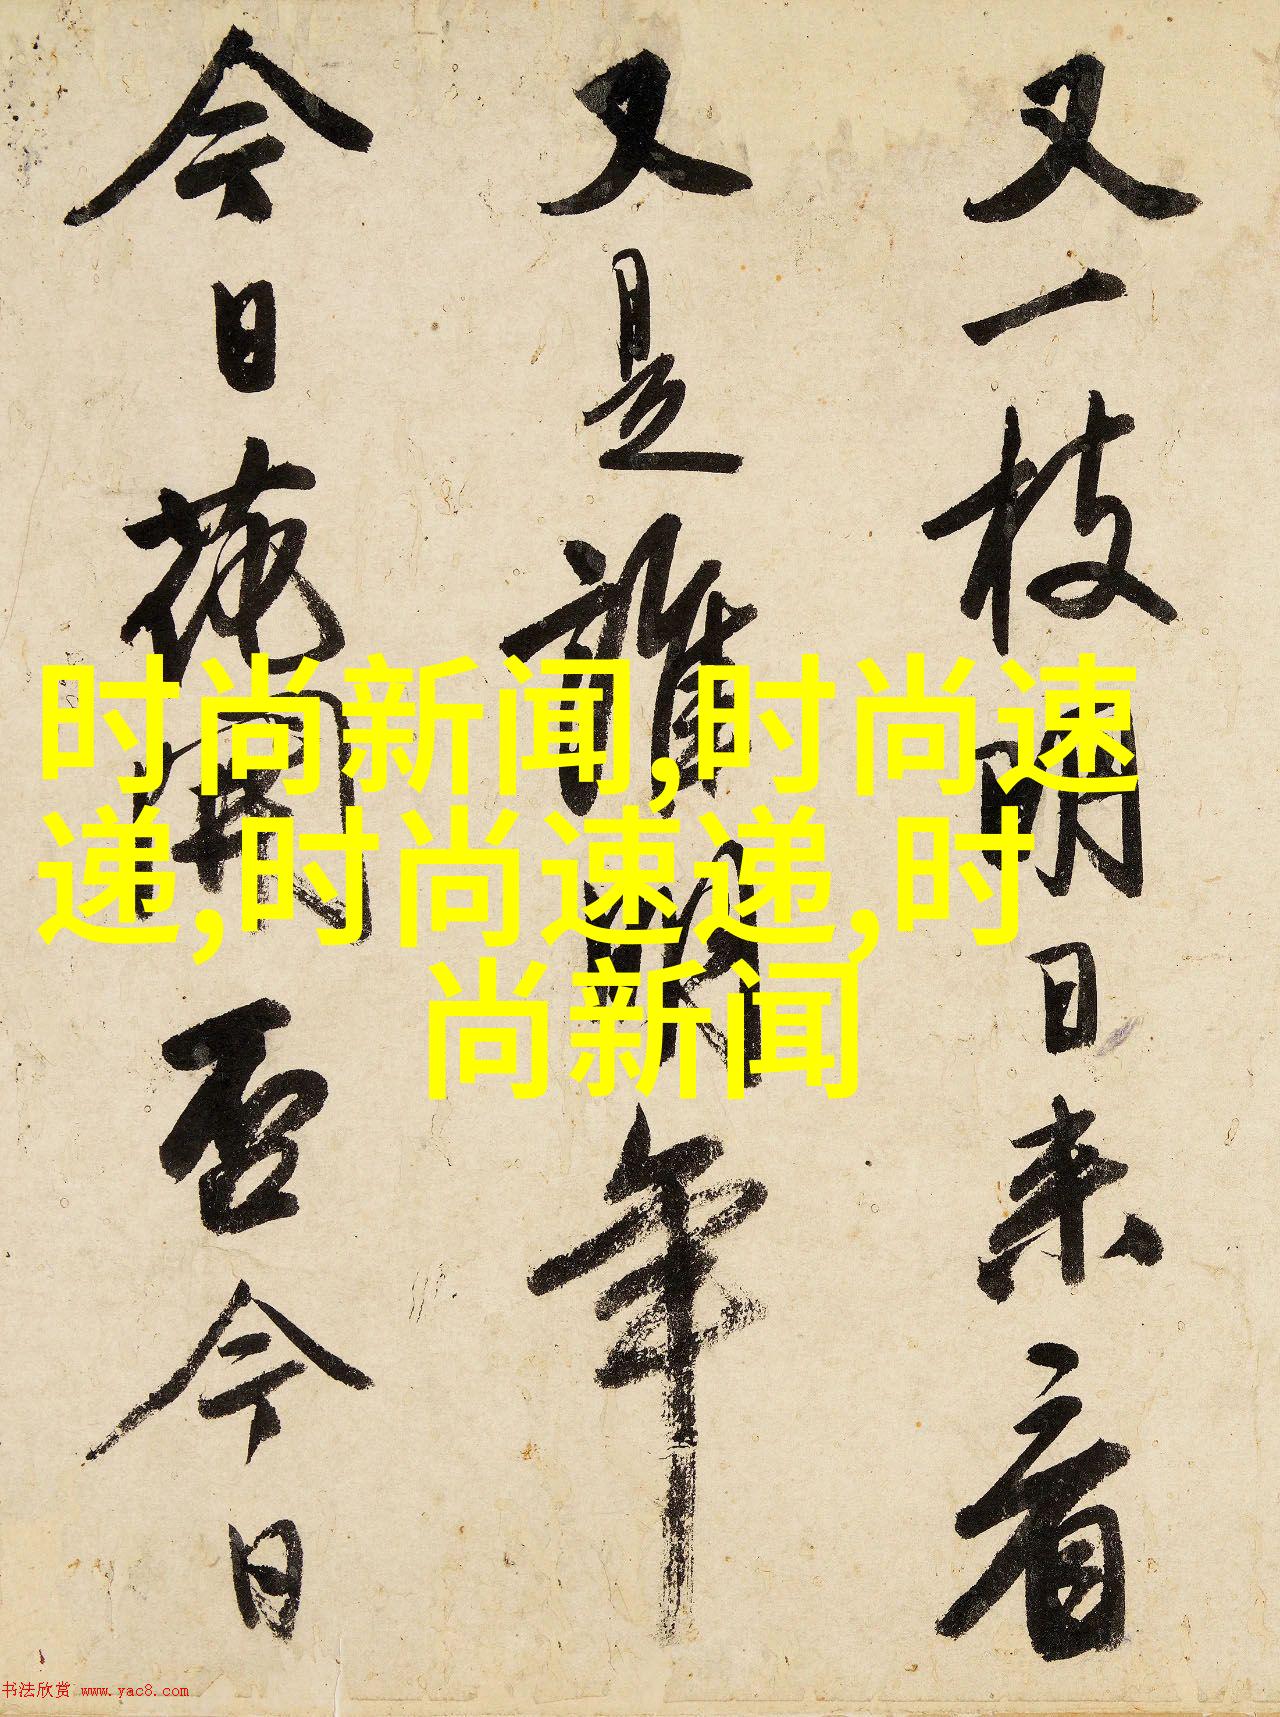 又一枝明日来看
又是誰明年
今日花開否今日
时尚新闻,时尚速
递,时尚速递,时
尚新闻
书法欣赏 www.yac8.com